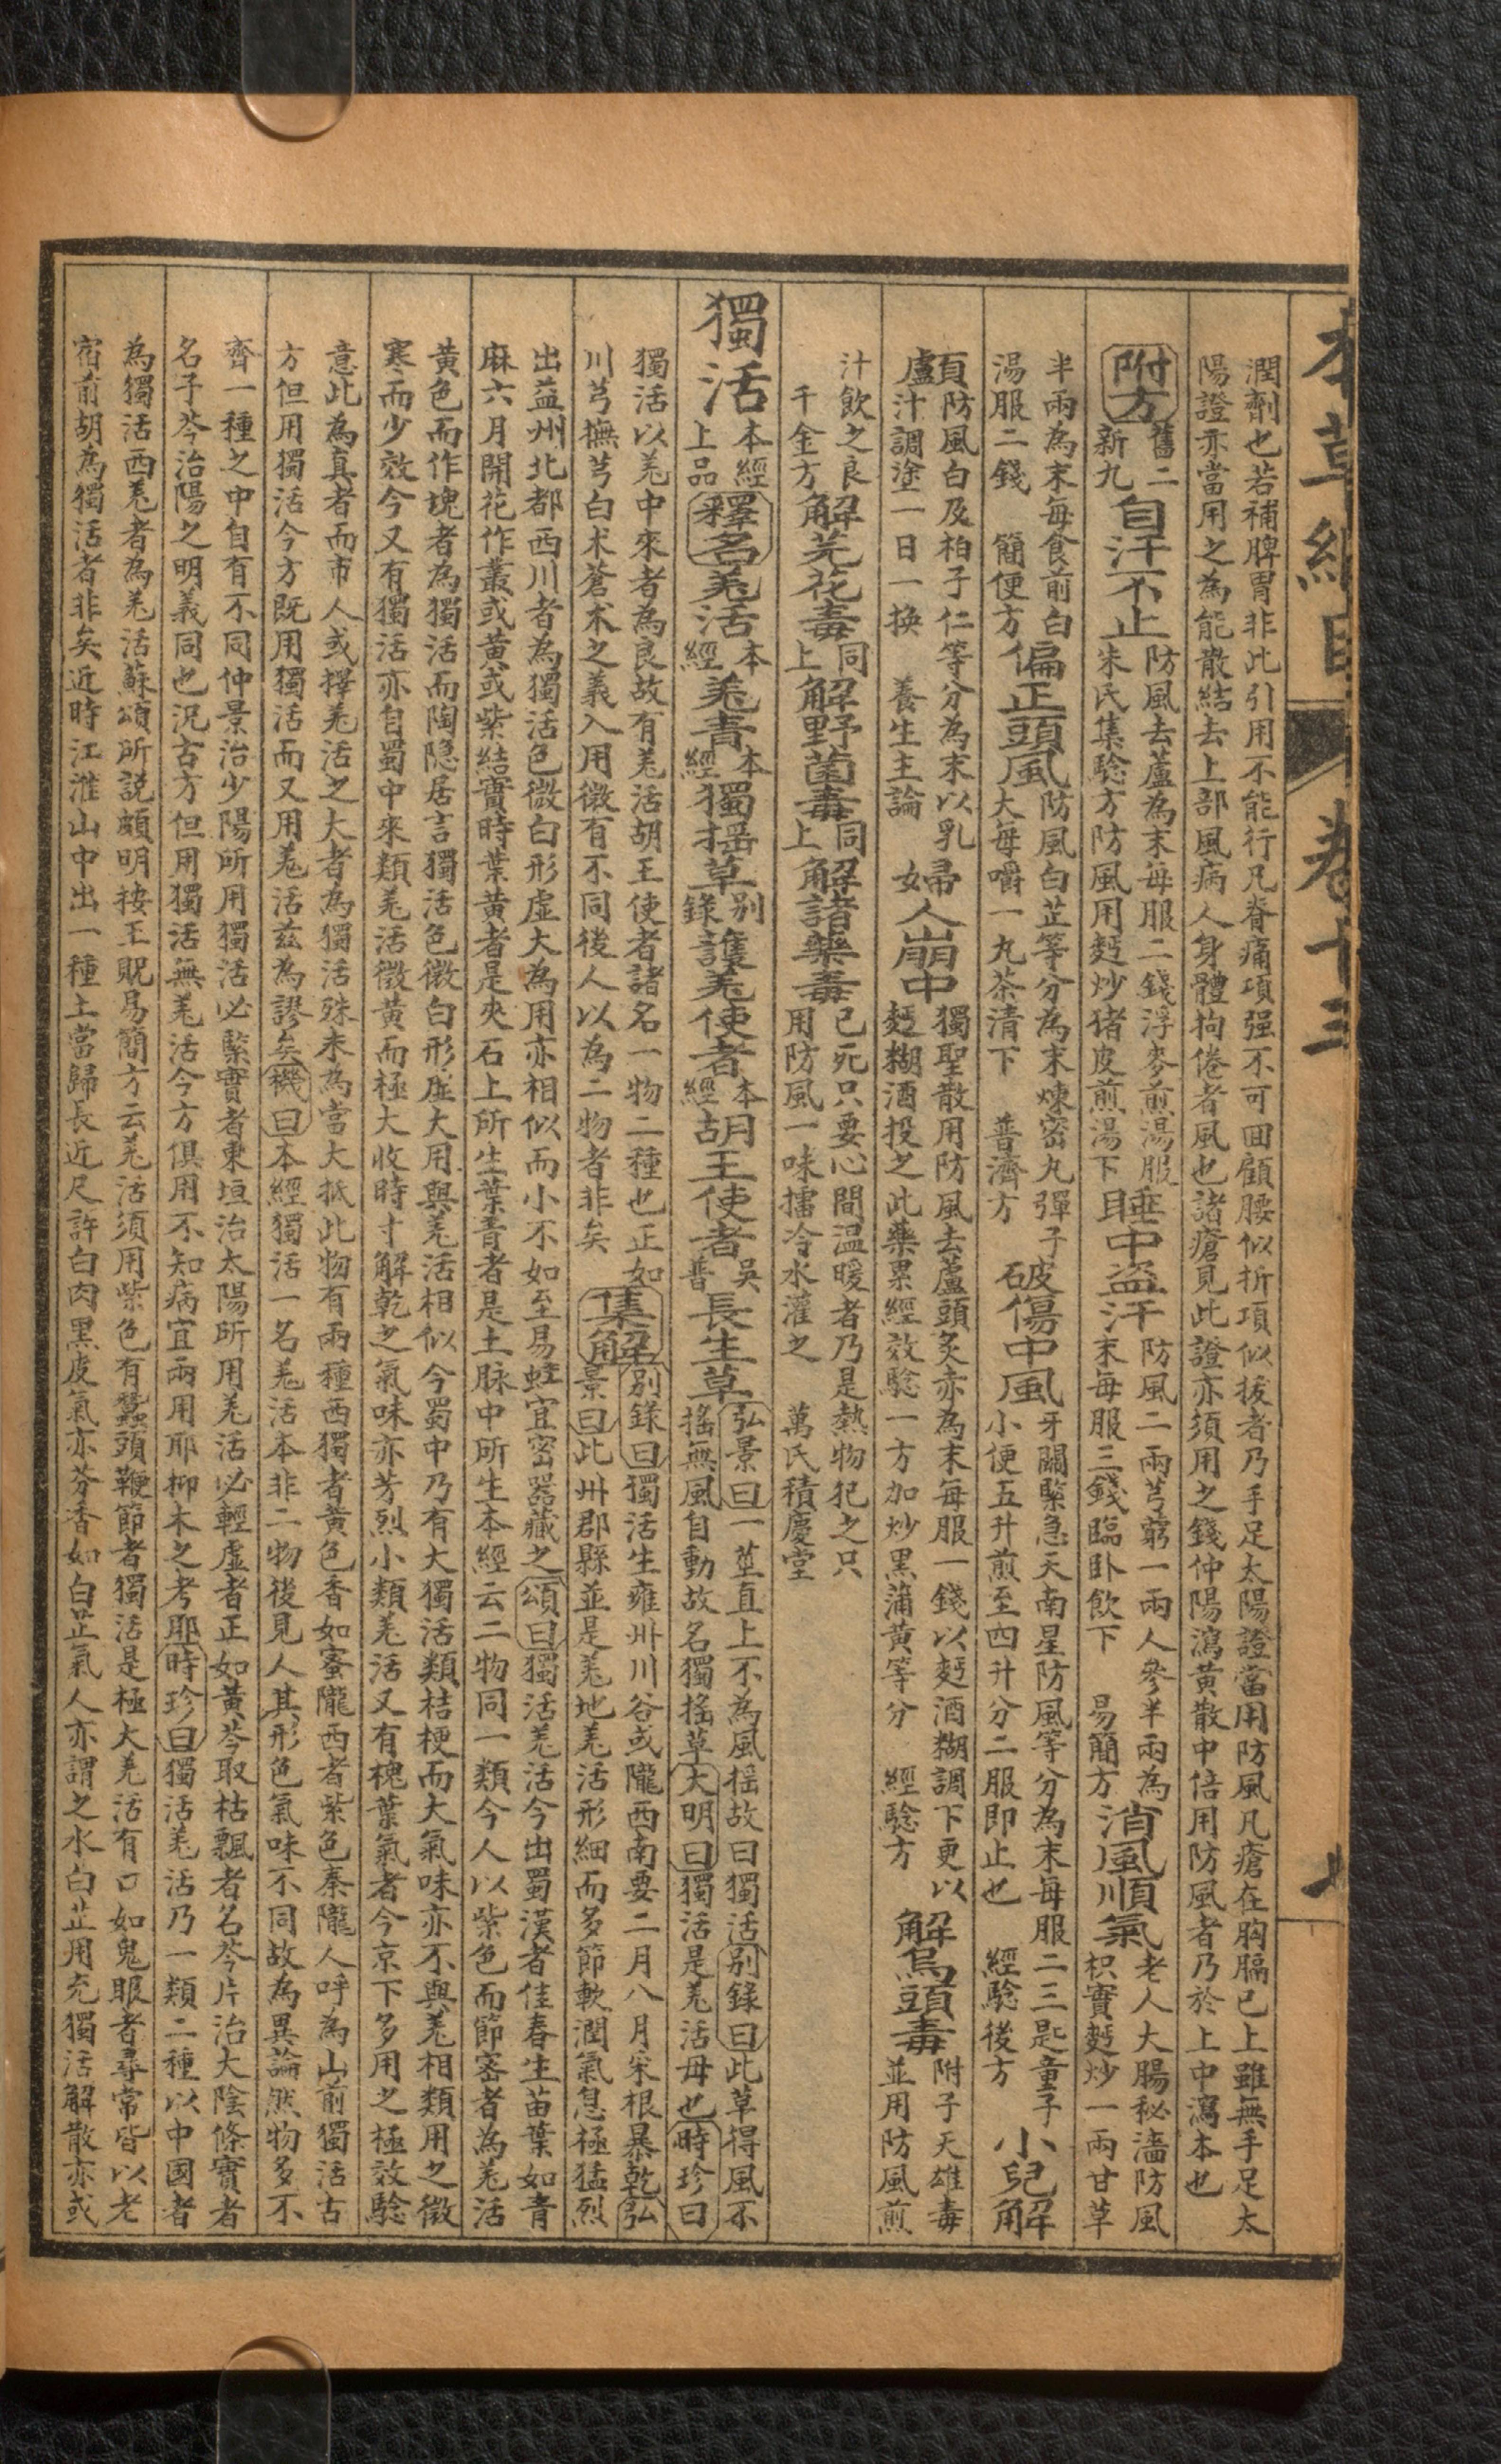 本草綱目 卷十三
潤劑也若補脾胃非此引用不能行凡脊痛項强不可回顧腰似折項似拔者乃手足太陽證當用防風凡瘡在胸膈已上雖無手足太
陽證亦當用之為能散結去上部風病人身體拘倦者風也諸瘡見此證亦須用之錢仲陽瀉黄散中倍用防風者乃於上中瀉本也
附方舊二新九自汗不止防風去蘆為末每服二錢浮麥煎湯服朱氏集騐方防風用麪炒猪皮煎湯下睡中盗汗防風二兩芎藭一兩人參半兩為末每服三錢臨卧飲下 易簡方消風順氣老人大腸秘濇防風枳實麪炒一兩甘草
半兩為末每食前白湯服二錢 簡便方偏正頭風防風白芷等分為末煉密丸彈子大每嚼一丸茶清下 普濟方破傷中風牙關緊急天南星防風等分為末每服二三匙童子小便五升煎至四升分二服即止也 經騐後方小兒解
顱防風白及柏子仁等分為末以乳汁調塗一日一换 養生主論婦人崩中獨聖散用防風去蘆頭炙赤為末每服一錢以麪酒糊調下更以麪糊酒投之此藥累經效騐一方加炒黑蒲黄等分 經騐方解烏頭毒附子天雄毒並用防風煎
汁飲之良千金方解芫花毒同上解野菌毒同上解諸藥毒已死只要心間温暖者乃是熱物犯之只用防風一味擂冷水灌之 萬氏積慶堂
獨活本經上品釋名羌活本經羌青本經獨摇草别錄護羌使者本經胡王使者吳普長生草弘景曰一莖直上不為風摇故曰獨活别錄曰此草得風不摇無風自動故名獨摇草大明曰獨活是羌活母也時珍曰
獨活以羌中來者為良故有羌活胡王使者諸名一物二種也正如川芎撫芎白术蒼术之義入用微有不同後人以為二物者非矣集解别錄曰獨活生雍州川谷或隴西南要二月八月采根暴乾弘景曰此州郡縣並是羌地羌活形細而多節軟潤氣息極猛烈
出益州北都西川者為獨活色微白形虛大為用亦相似而小不如至易蛀宜密器藏之頌曰獨活羌活今出蜀漢者佳春生苗葉如青
麻六月開花作叢或黄或紫結實時葉黄者是夾石上所生葉青者是土脉中所生本經云二物同一類今人以紫色而節密者為羌活
黄色而作塊者為獨活而陶隐居言獨活色微白形虛大用與羌活相似今蜀中乃有大獨活類桔梗而大氣味亦不與羌相類用之微
寒而少效今又有獨活亦自蜀中來類羌活微黄而極大收時寸解乾之氣味亦芳烈小類羌活又有槐葉氣者今京下多用之極效騐
意此為真者而市人或擇羌活之大者為獨活殊未為當大抵此物有兩種西獨者黄色香如蜜隴西者紫色秦隴人呼為山前獨活古
方但用獨活今方既用獨活而又用羌活兹為謬矣機曰本經獨活一名羌活本非二物後見人其形色氣味不同故為異論然物多不
齊一種之中自有不同仲景治少陽所用獨活必緊實者東垣治太陽所用羌活必輕虛者正如黄芩取枯飄者名芩片治大陰條實者
名子芩治陽之明義同也况古方但用獨活無羌活今方俱用不知病宜兩用耶抑未之考耶時珍曰獨活羌活乃一類二種以中国者
為獨活西羌者為羌活蘇頌所説頗明按王貺易簡方云羌活須用紫色有蠶頭鞭節者獨活是極大羌活有口如鬼眼者尋常皆以老
宿前胡為獨活者非矣近時江淮山中出一種土當歸長近尺許白肉黑皮氣亦芬香如白芷氣人亦謂之水白芷用充獨活解散亦或